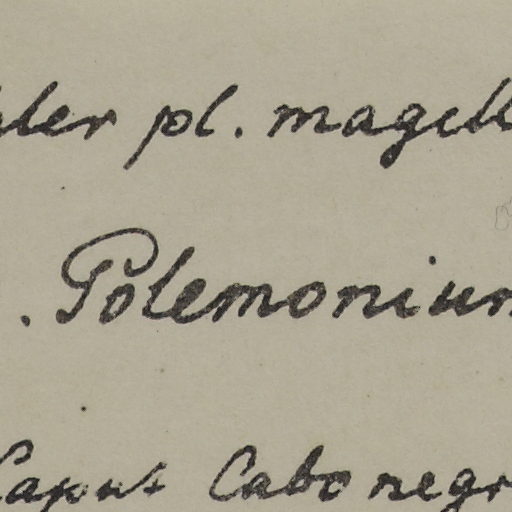 ler pl. magell
. Polemonium
Caput Cabo negr